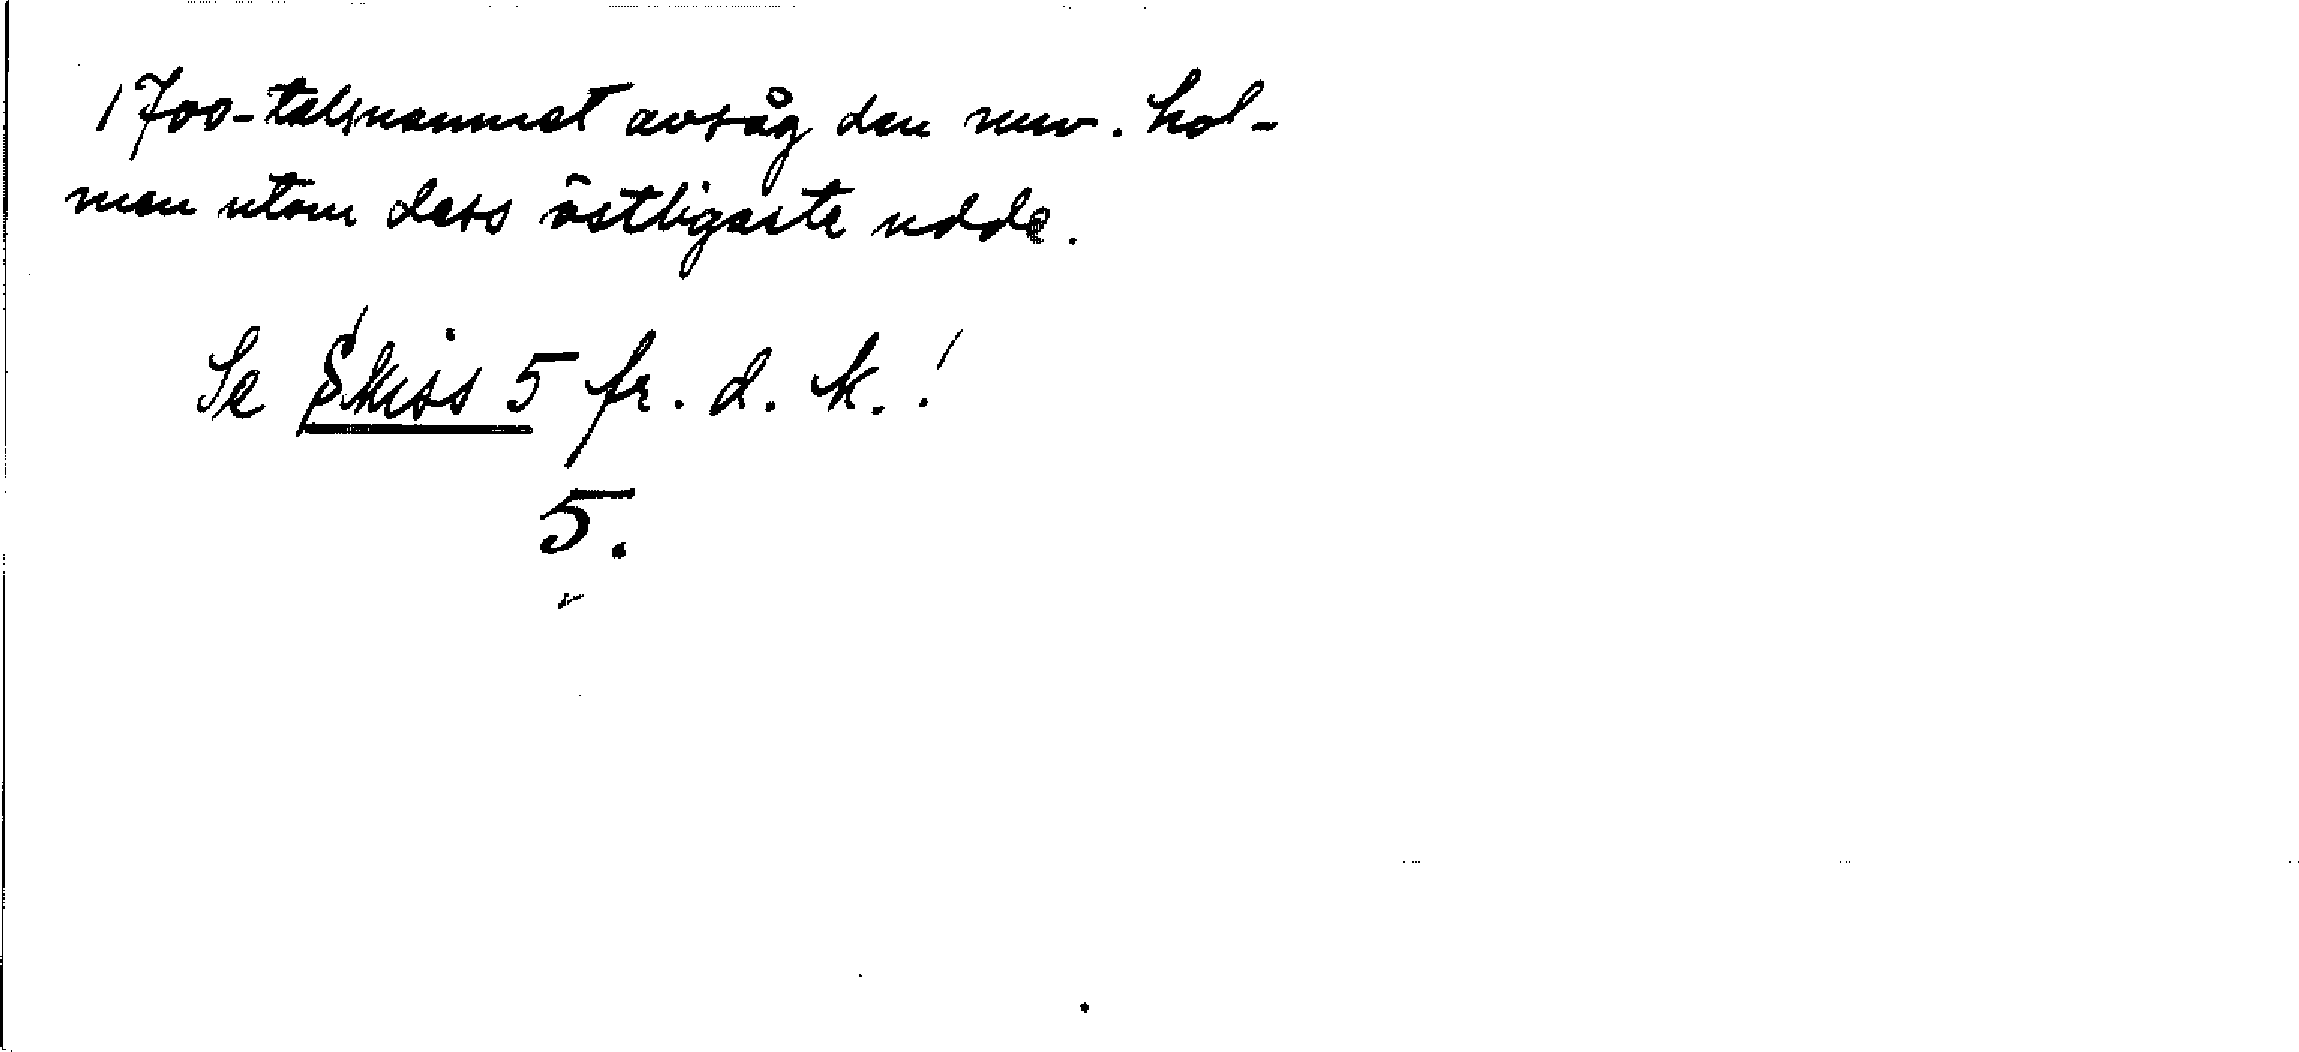 1700-talsnamnet avsåg den nuv. hol-
men utom dess östligaste udde.
Se Skiss 5 fr. d. k.!
5.